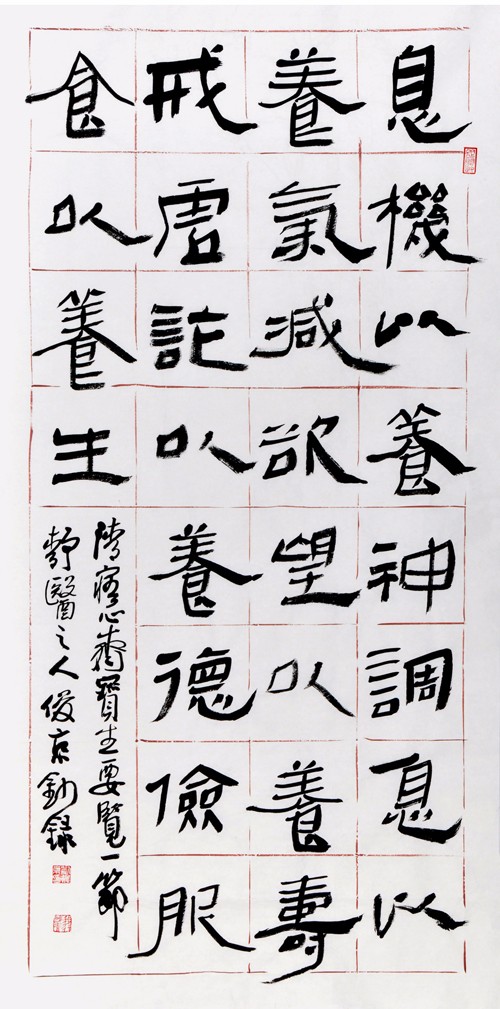 息機以養神調息以
養氣減欲望以養壽
戒虛以養德儉服
食以養生
心齋寶生要覽一節
靜醫之人俊京鈔錄